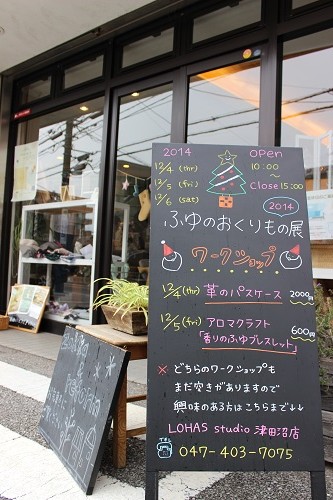 2014
OPEN
12/4 (thr)
10:00~
12/5 (fri)
12/6 (sat)
Close 15:00
2014
ふゆのおくりもの展
ワークショップ
12/4(thr) 革のパスケース 2000円
12/5(fri) アロマクラフト
「香りのふゆブレスレット」 600円
× どちらのワークショップも
まだ空きがありますので
興味のある方はこちらまで↓↓
LOHAS studio 津田沼店
TEL 047-403-7075